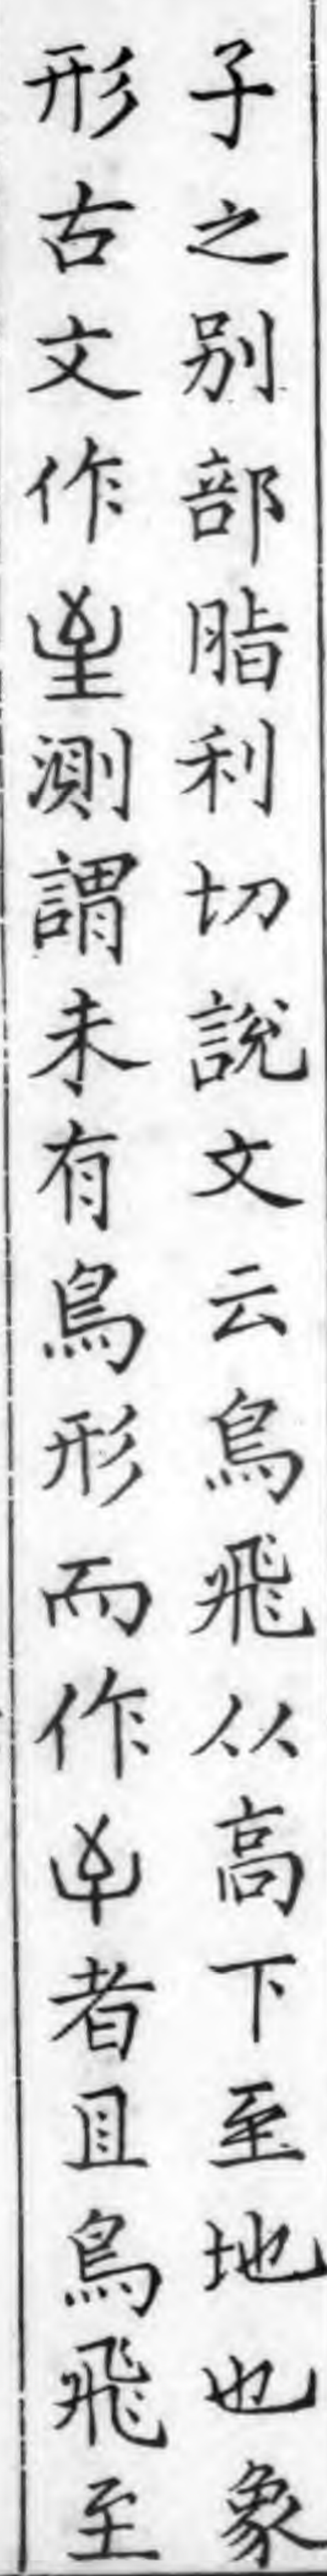 子之别部脂利切說文云鳥飛从高下至地也象
形古文作測謂未有鳥形而作者且鳥飛至